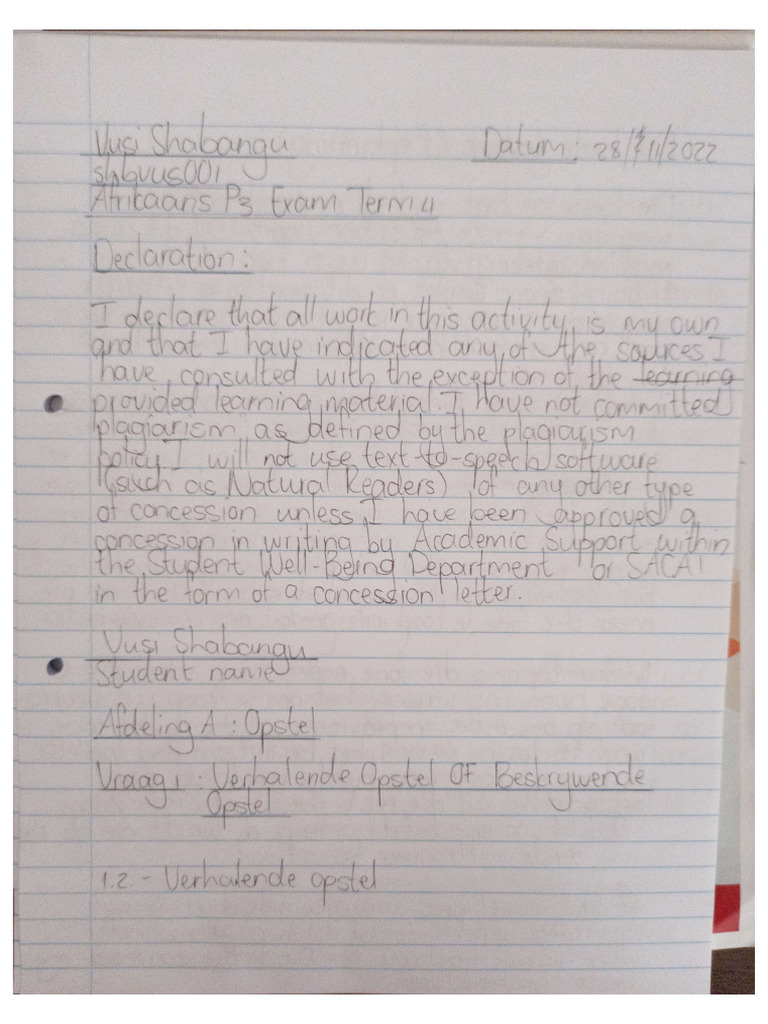 Vusi Shabangu Datum: 28/11/2022
shbvus001
Afrikaans P3 Exam Term 4
Declaration:
I declare that all work in this activity is my own
and that I have indicated any of the sources I
have consulted with the exception of the learning
provided learning material. I have not committed
plagiarism as defined by the plagiarism
policy. I will not use text-to-speech software
(such as Natural Readers) of any other type
of concession unless I have been approved a
concession in writing by Academic Support within
the Student Well-Being Department or SACAI
in the form of a concession letter.
Vusi Shabangu
Student name
Afdeling A: Opstel
Vraag 1: Verhalende Opstel OF Beskrywende
Opstel
1.2. - Verhalende opstel